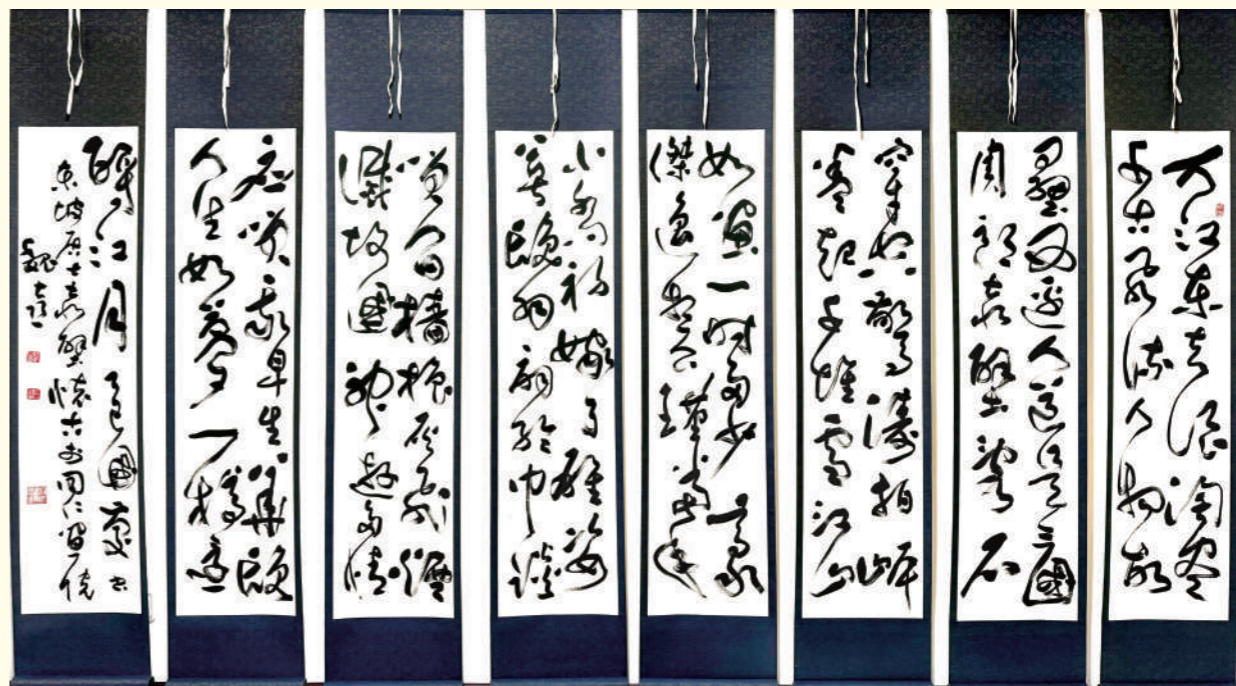 大江東去浪淘盡
千古風流人物故
壘西邊人道是三國
周郎赤壁亂石
穿空驚濤拍岸
卷起千堆雪江山
如畫一時多少豪
傑遙想公瑾當年
小喬初嫁了雄姿
英發羽扇綸巾談
笑間檣櫓灰飛煙
滅故國神遊多情
應笑我早生華髮
人生如夢一樽還
酹江月 國慶書
東坡居士赤壁懷古
魏